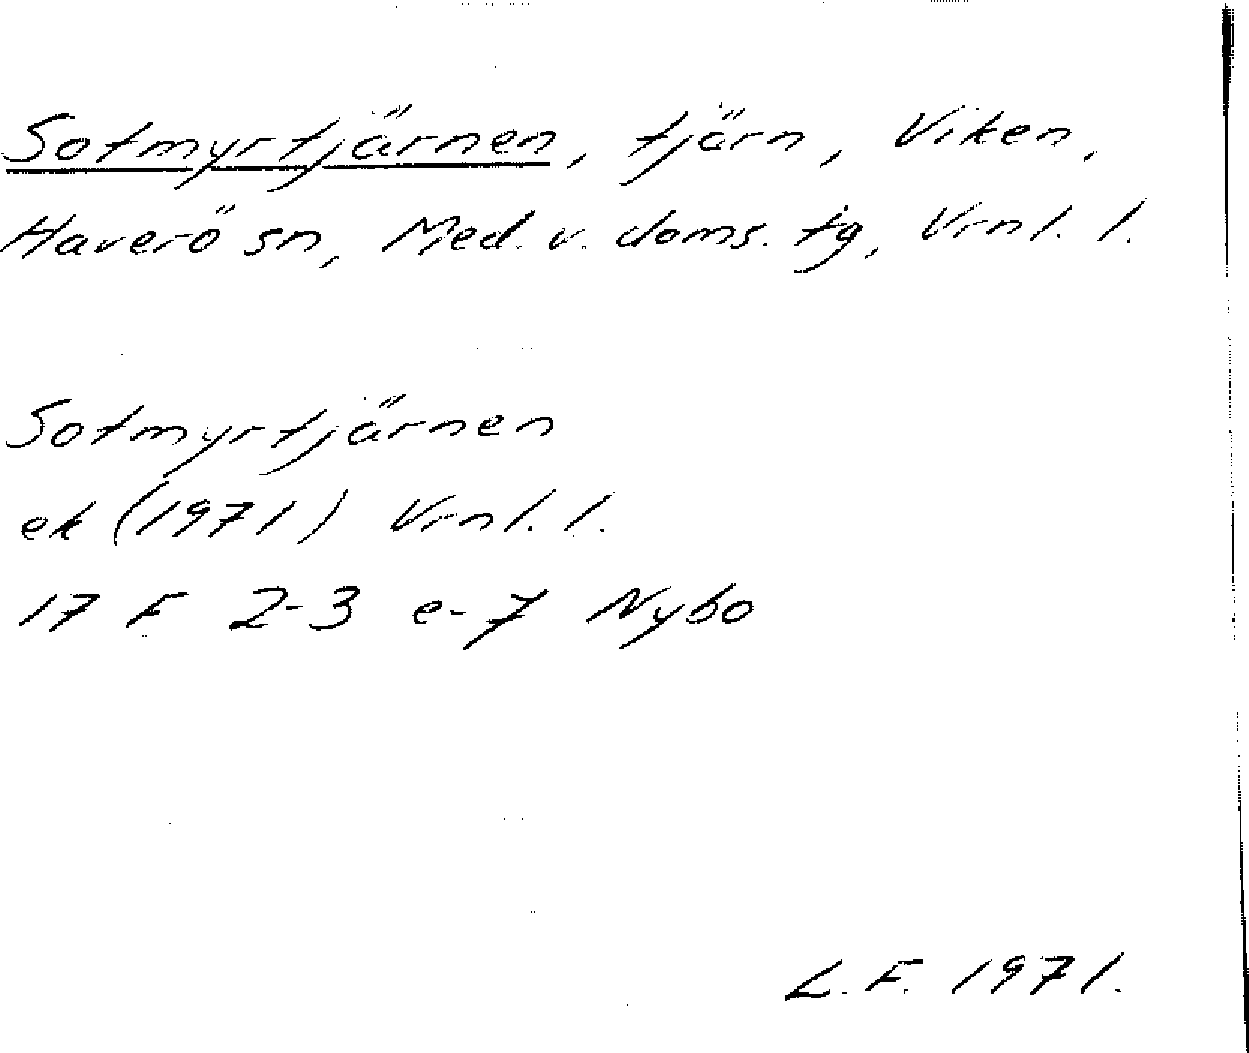 Sotmyrtjärnen, tjärn, Viken,
Haverö sn, Med. v. doms. tg, Vrnl. l.
Sotmyrtjärnen
ek (1971) Vrnl. l.
17 F 2-3 e-7 Nybo
L. F. 1971.